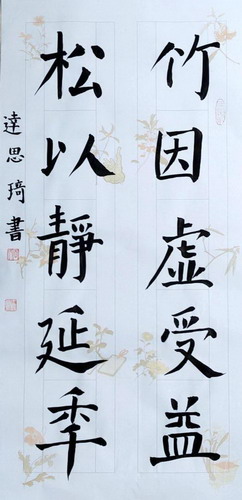 竹因虚受益
松以靜延年
達思琦書